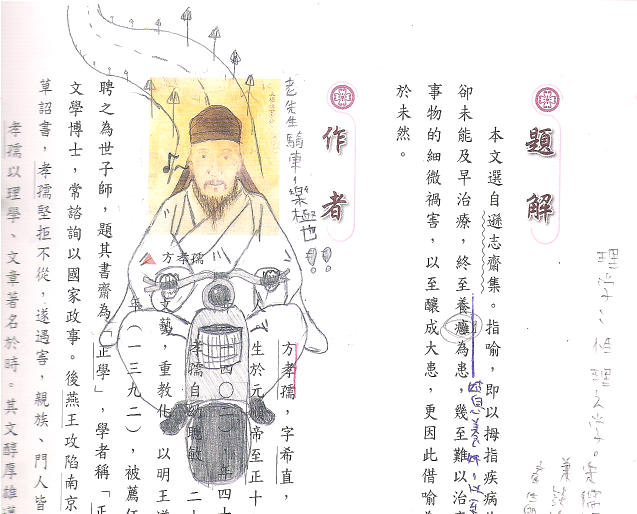 理學：性理之學。
題解
本文選自遜志齋集。指喻，即以拇指疾病
卻未能及早治療，終至養癰為患，幾至難以治
事物的細微禍害，以至釀成大患，更因此借喻
於未然。
作者
老先生騎車，樂極也!!
方孝孺
方孝孺，字希直，
生於元 帝至正十
一四〇二）年四
孝孺自幼聰敏 二
文藝，重教化 以明王道
年（一三九二），被薦任
聘之為世子師，題其書齋為「正學」，學者稱「正
文學博士，常諮詢以國家政事。後燕王攻陷南京
草詔書，孝孺堅拒不從，遂遇害，親族、門人皆
孝孺以理學、文章著名於時。其文醇厚雄